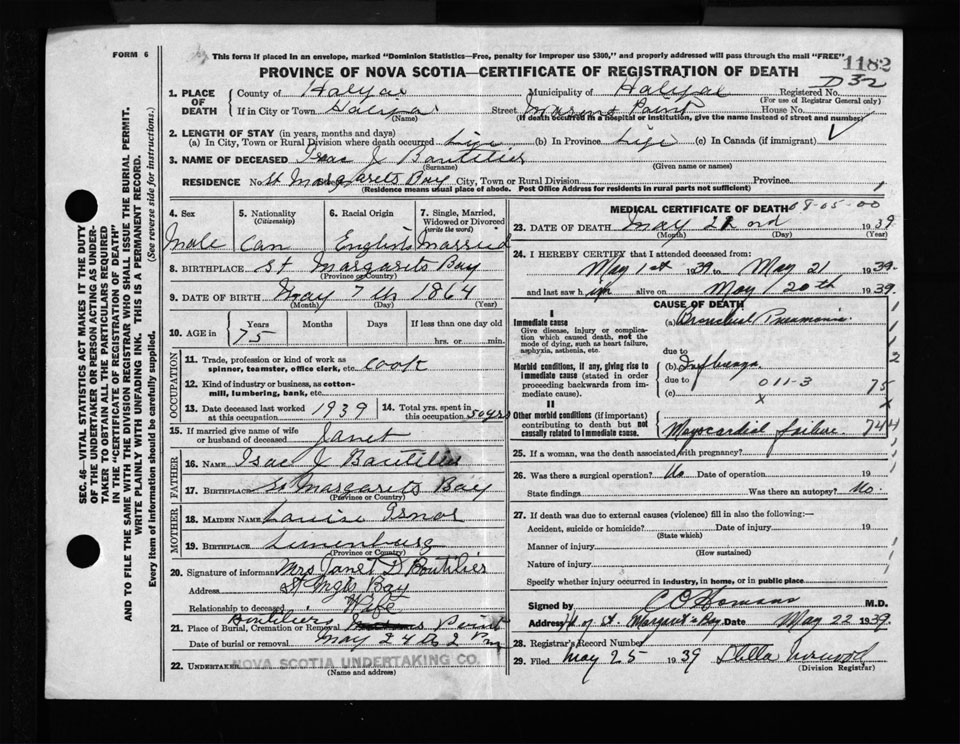 FORM 6
This form if placed in an envelope, marked "Dominion Statistics—Free, penalty for improper use $300," and properly addressed will pass through the mail "FREE"
1182
PROVINCE OF NOVA SCOTIA—CERTIFICATE OF REGISTRATION OF DEATH
1. PLACE OF DEATH
County of Halifax Municipality of Halifax Registered No.
(For use of Registrar General only)
If in City or Town Halifax Street Point House No.
(Name) (If death occurred in a hospital or institution, give the name instead of street and number)
2. LENGTH OF STAY (in years, months and days)
(a) In City, Town or Rural Division where death occurred Life (b) In Province Life (c) In Canada (if immigrant)
3. NAME OF DECEASED Isac J Boutilier
(Surname) (Given name or names)
RESIDENCE No. St Margarets Bay City, Town or Rural Division Province
(Residence means usual place of abode. Post Office Address for residents in rural parts not sufficient)
4. Sex Male
5. Nationality (Citizenship) Can
6. Racial Origin English
7. Single, Married, Widowed or Divorced (write the word) Married
8. BIRTHPLACE St Margarets Bay
(Province or Country)
9. DATE OF BIRTH May 7th 1864
(Month) (Day) (Year)
10. AGE in Years 75 Months Days If less than one day old
hrs. or min.
OCCUPATION
11. Trade, profession or kind of work as spinner, teamster, office clerk, etc. cook
12. Kind of industry or business, as cotton-mill, lumbering, bank, etc.
13. Date deceased last worked at this occupation 1939
14. Total yrs. spent in this occupation 50 yrs
15. If married give name of wife or husband of deceased Janet
FATHER
16. Name Isac J Boutilier
17. Birthplace St Margarets Bay
(Province or Country)
MOTHER
18. MAIDEN NAME Louise Isnor
19. BIRTHPLACE Lunenburg
(Province or Country)
20. Signature of informant Mrs Janet D Boutilier
Address St Mgts Bay
Relationship to deceased Wife
21. Place of Burial, Cremation or Removal Boutiliers Point
Date of burial or removal May 24 2 Pm
22. UNDERTAKER NOVA SCOTIA UNDERTAKING CO.
(Name and address)
MEDICAL CERTIFICATE OF DEATH 08-05-00
23. DATE OF DEATH May 22nd 1939
(Month) (Day) (Year)
24. I HEREBY CERTIFY that I attended deceased from:
May 1st 1939 to May 21 1939
and last saw him alive on May 20th 1939
CAUSE OF DEATH
I
Immediate cause
Give disease, injury or complication which caused death, not the mode of dying, such as heart failure, asphyxia, asthenia, etc.
(a) Bronchial Pneumonia
due to
Morbid conditions, if any, giving rise to immediate cause (stated in order proceeding backwards from immediate cause)
(b) Influenza
due to 011-3
(c) x
75
II
Other morbid conditions (if important) contributing to death but not causally related to immediate cause.
Mayocardial failure 744
25. If a woman, was the death associated with pregnancy?
26. Was there a surgical operation? No Date of operation 19
State findings Was there an autopsy? No
27. If death was due to external causes (violence) fill in also the following:—
Accident, suicide or homicide? Date of injury 19
(State which)
Manner of injury
(How sustained)
Nature of injury
Specify whether injury occurred in industry, in home, or in public place
Signed by M.D.
Address Hd of St. Margaret's Bay Date May 22 1939
28. Registrar's Record Number
29. Filed May 25 1939 Stella
(Division Registrar)
SEC. 46—VITAL STATISTICS ACT MAKES IT THE DUTY
OF THE UNDERTAKER OR PERSON ACTING AS UNDER-
TAKER TO OBTAIN ALL THE PARTICULARS REQUIRED
IN THE "CERTIFICATE OF REGISTRATION OF DEATH"
AND TO FILE THE SAME WITH THE DIVISION REGISTRAR WHO SHALL ISSUE THE BURIAL PERMIT.
WRITE PLAINLY WITH UNFADING INK. THIS IS A PERMANENT RECORD.
Every item of information should be carefully supplied. (See reverse side for instructions.)